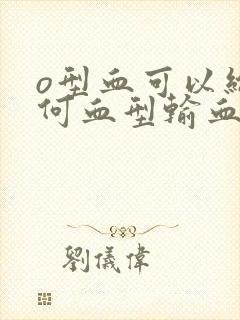 o型血可以給
何血型輸血
劉儀偉